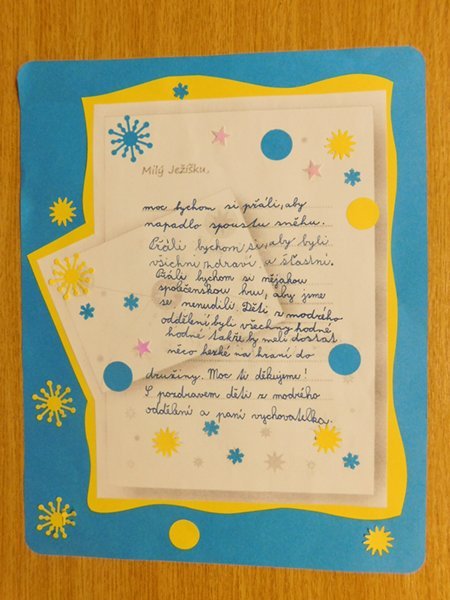 Milý Ježíšku,
moc bychom si přáli, aby
napadlo spoustu sněhu.
Přáli bychom si, aby byli
všichni zdraví a šťastní.
Přáli bychom si nějakou
společenskou hru, aby jsme
se nenudili. Děti z modrého
oddělení byli všechny hodné
hodné takže by měli dostat
něco hezké na hraní do
družiny. Moc ti děkujeme!
S pozdravem děti z modrého
oddělení a paní vychovatelka.